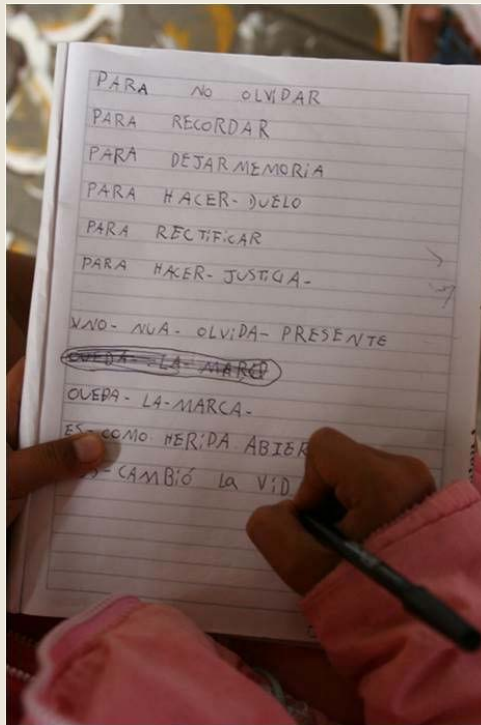 PARA NO OLVIDAR
PARA RECORDAR
PARA DEJAR MEMORIA
PARA HACER-DUELO
PARA RECTIFICAR
PARA HACER-JUSTICIA-
UNO-NUA-OLVIDA-PRESENTE
QUEDA-LA-MARCA
QUEDA-LA-MARCA-
ES-COMO-HERIDA ABIER
CAMBIÓ La VID